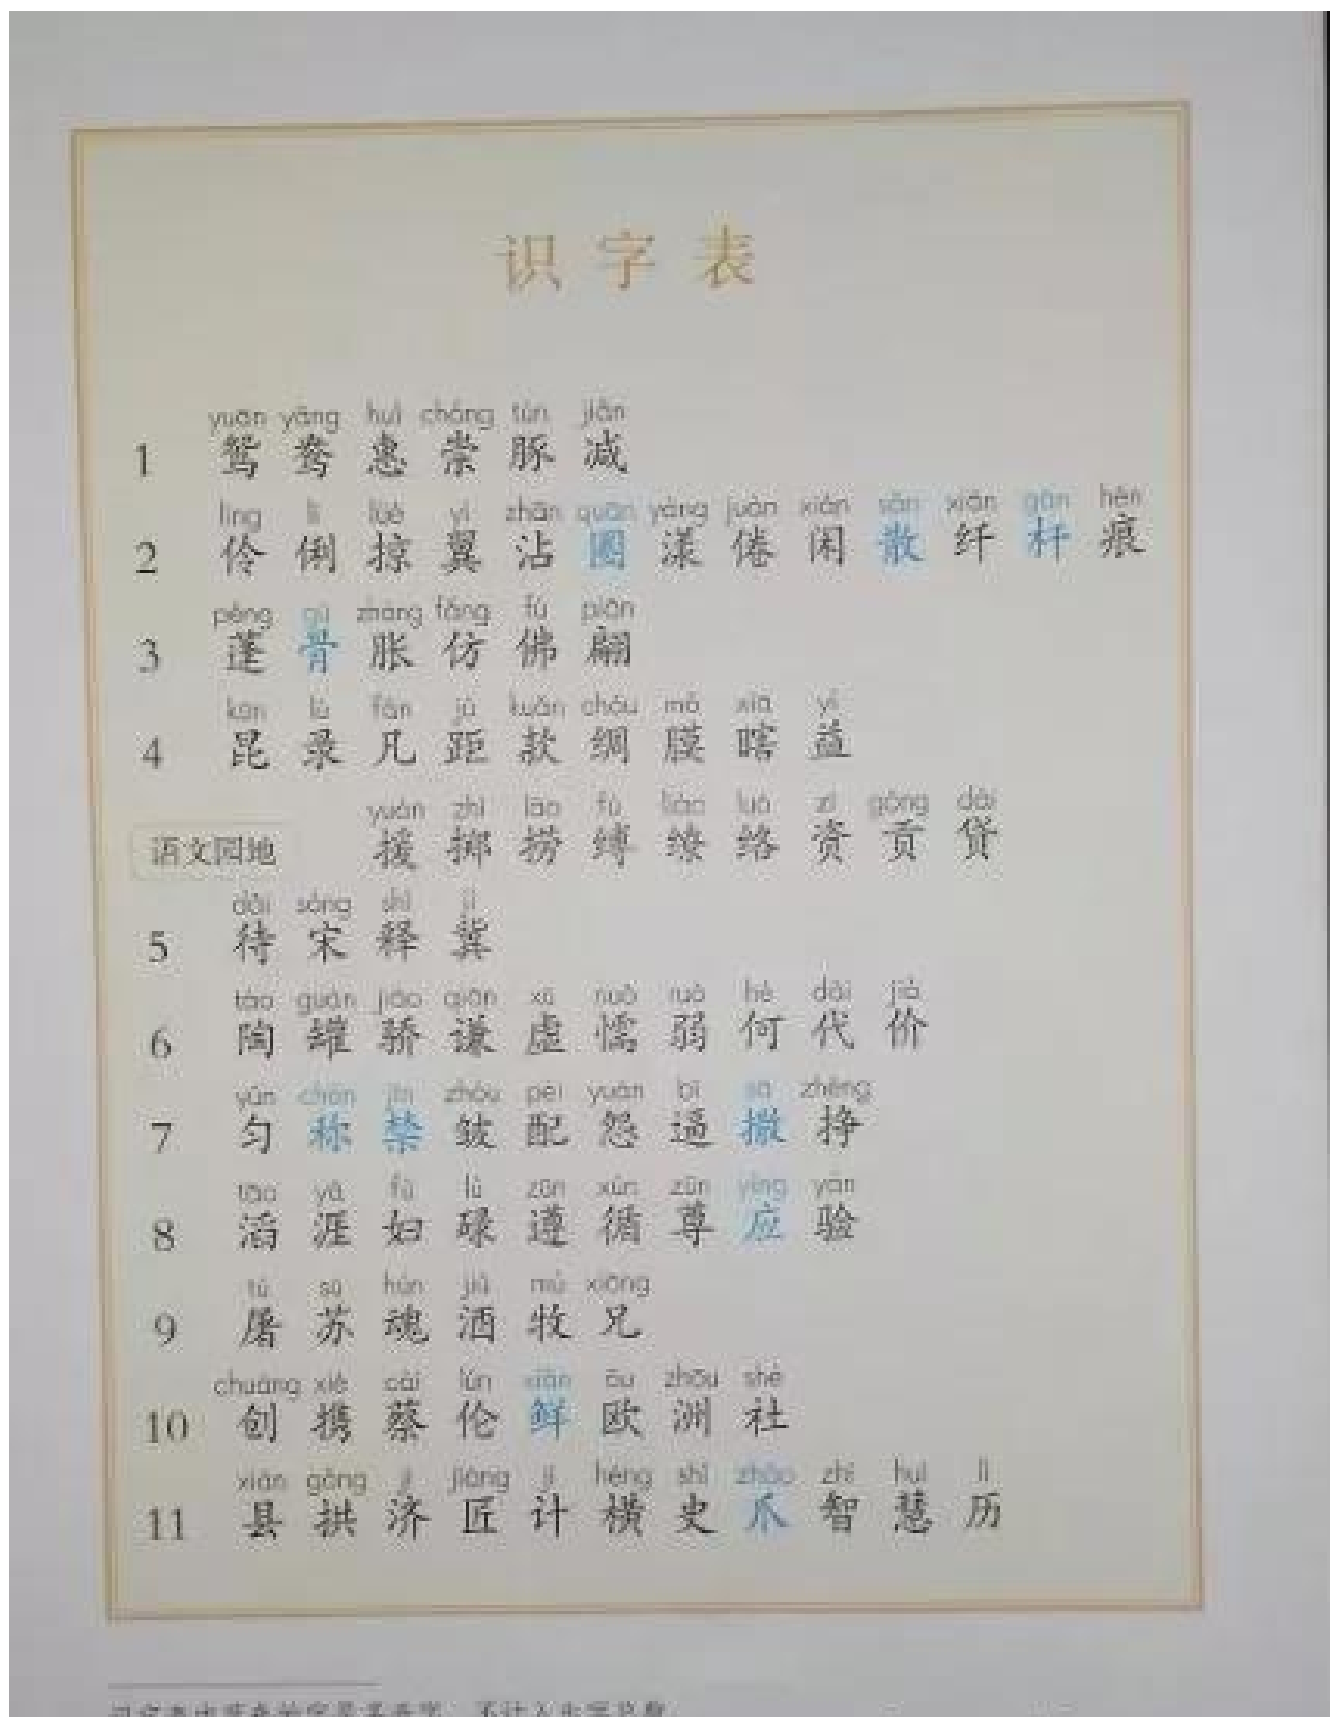 识字表
yuān yāng huì chóng tún jiǎn
1 鸳 鸯 惠 崇 豚 减
líng lì lüè yì zhān quān yàng juàn xián sǎn xiān gǎn hén
2 伶 俐 掠 翼 沾 圈 漾 倦 闲 散 纤 杆 痕
péng gū zhàng fǎng fú piān
3 蓬 骨 胀 仿 佛 翩
kūn lù fán jù kuǎn chóu mó xiā yì
4 昆 录 凡 距 款 绸 膜 瞎 益
yuán zhì lāo fù liáo luò zī gòng dài
语文园地 援 掷 捞 缚 缭 络 资 贡 贷
dài sòng shì jì
5 待 宋 释 冀
táo guàn jiāo qiān xū nuò ruò hé dài jià
6 陶 罐 骄 谦 虚 懦 弱 何 代 价
yún chèn jīn zhòu pèi yuàn bī sā zhēng
7 匀 称 禁 皱 配 怨 逼 撒 挣
tāo yá fù lù zūn xún zūn yìng yàn
8 滔 涯 妇 碌 遵 循 尊 应 验
tú sū hún jiǔ mù xiōng
9 屠 苏 魂 酒 牧 兄
chuàng xié cài lún xiǎn ōu zhōu shè
10 创 携 蔡 伦 鲜 欧 洲 社
xiàn gǒng jì jiàng jì héng shǐ zhǎo zhì huì lì
11 县 拱 济 匠 计 横 史 爪 智 慧 历